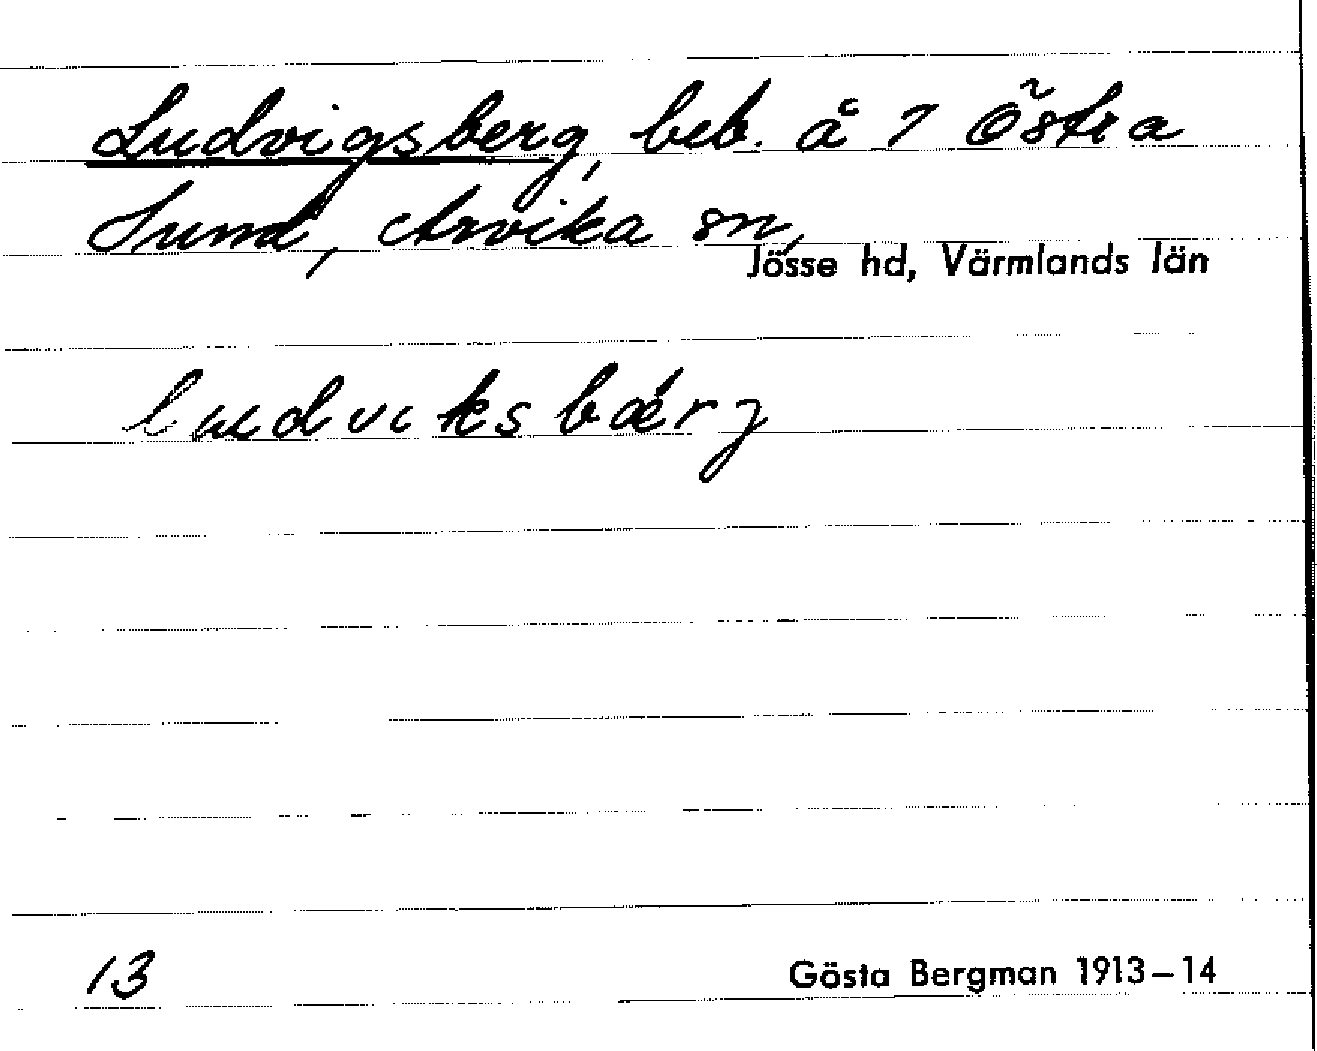 Ludvigsberg, beb. å 1 Östra
Sund, Arvika sn,
Jösse hd, Värmlands län
ludviksbærj
13
Gösta Bergman 1913-14